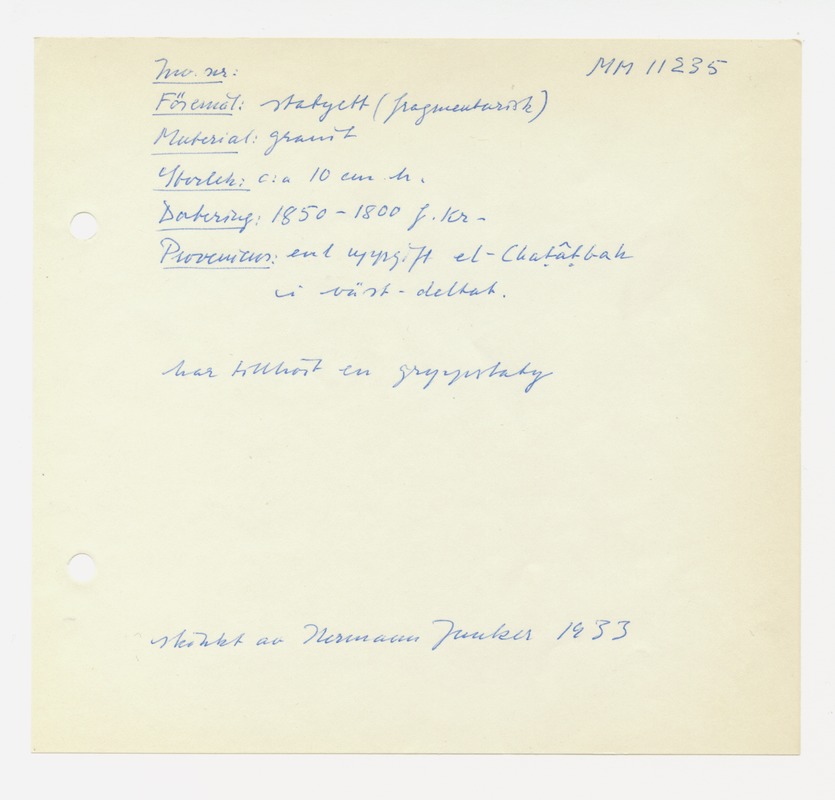 Inv. nr: MM 11235
Föremål: statyett (fragmentarisk)
Material: granit
Storlek: c:a 10 cm h.
Datering: 1850-1800 f.Kr.
Proveniens: enl uppgift el-Chaṭâṭbah
i väst-deltat.
har tillhört en gruppstaty
skänkt av Hermann Junker 1933